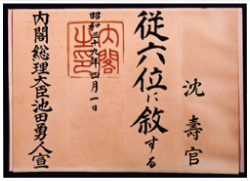 沈壽官
従六位に叙する
昭和三十九年四月一日
内閣之印
内閣総理大臣池田勇人宣